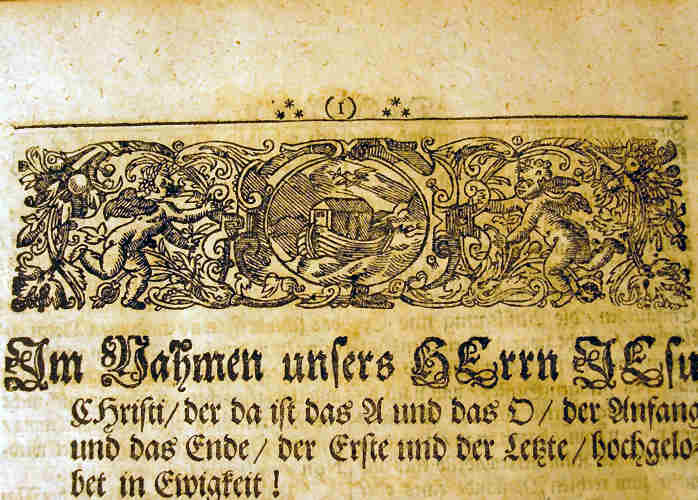 (1)
Im Nahmen unsers HErrn JEsu
CHristi/ der da ist das A und das O/ der Anfang
und das Ende/ der Erste und der Letzte/ hochgelo-
bet in Ewigkeit!